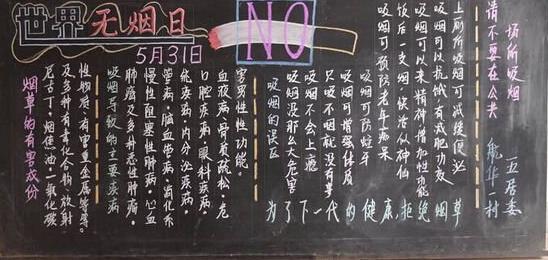 世界无烟日
5月31日
NO
请不要在公共
场所吸烟
上厕所吸烟可减缓便泌
吸烟可以抗饿,有减肥功效
吸烟可以来精神增加性功能
饭后一支烟,快活似神仙
吸烟可预防老年痴呆
吸烟可防蛀牙
吸烟可增强体质
只吸不咽就没有事
吸烟不会上瘾
吸烟没那么大危害
吸烟的误区
害男性性功能。
血液病,骨质疏松,危
口腔疾病,眼科疾病,
统疾病,内分泌疾病,
管病,脑血管病,消化系
慢性阻塞性肺病,心血
肺癌及多种恶性肿瘤,
吸烟导致的主要疾病
性物质,有害重金属等等。
及多种有毒化合物,放射
尼古丁,烟焦油,一氧化碳
烟草的有害成份
为了下一代的健康,拒绝烟草
航华一村
五居委